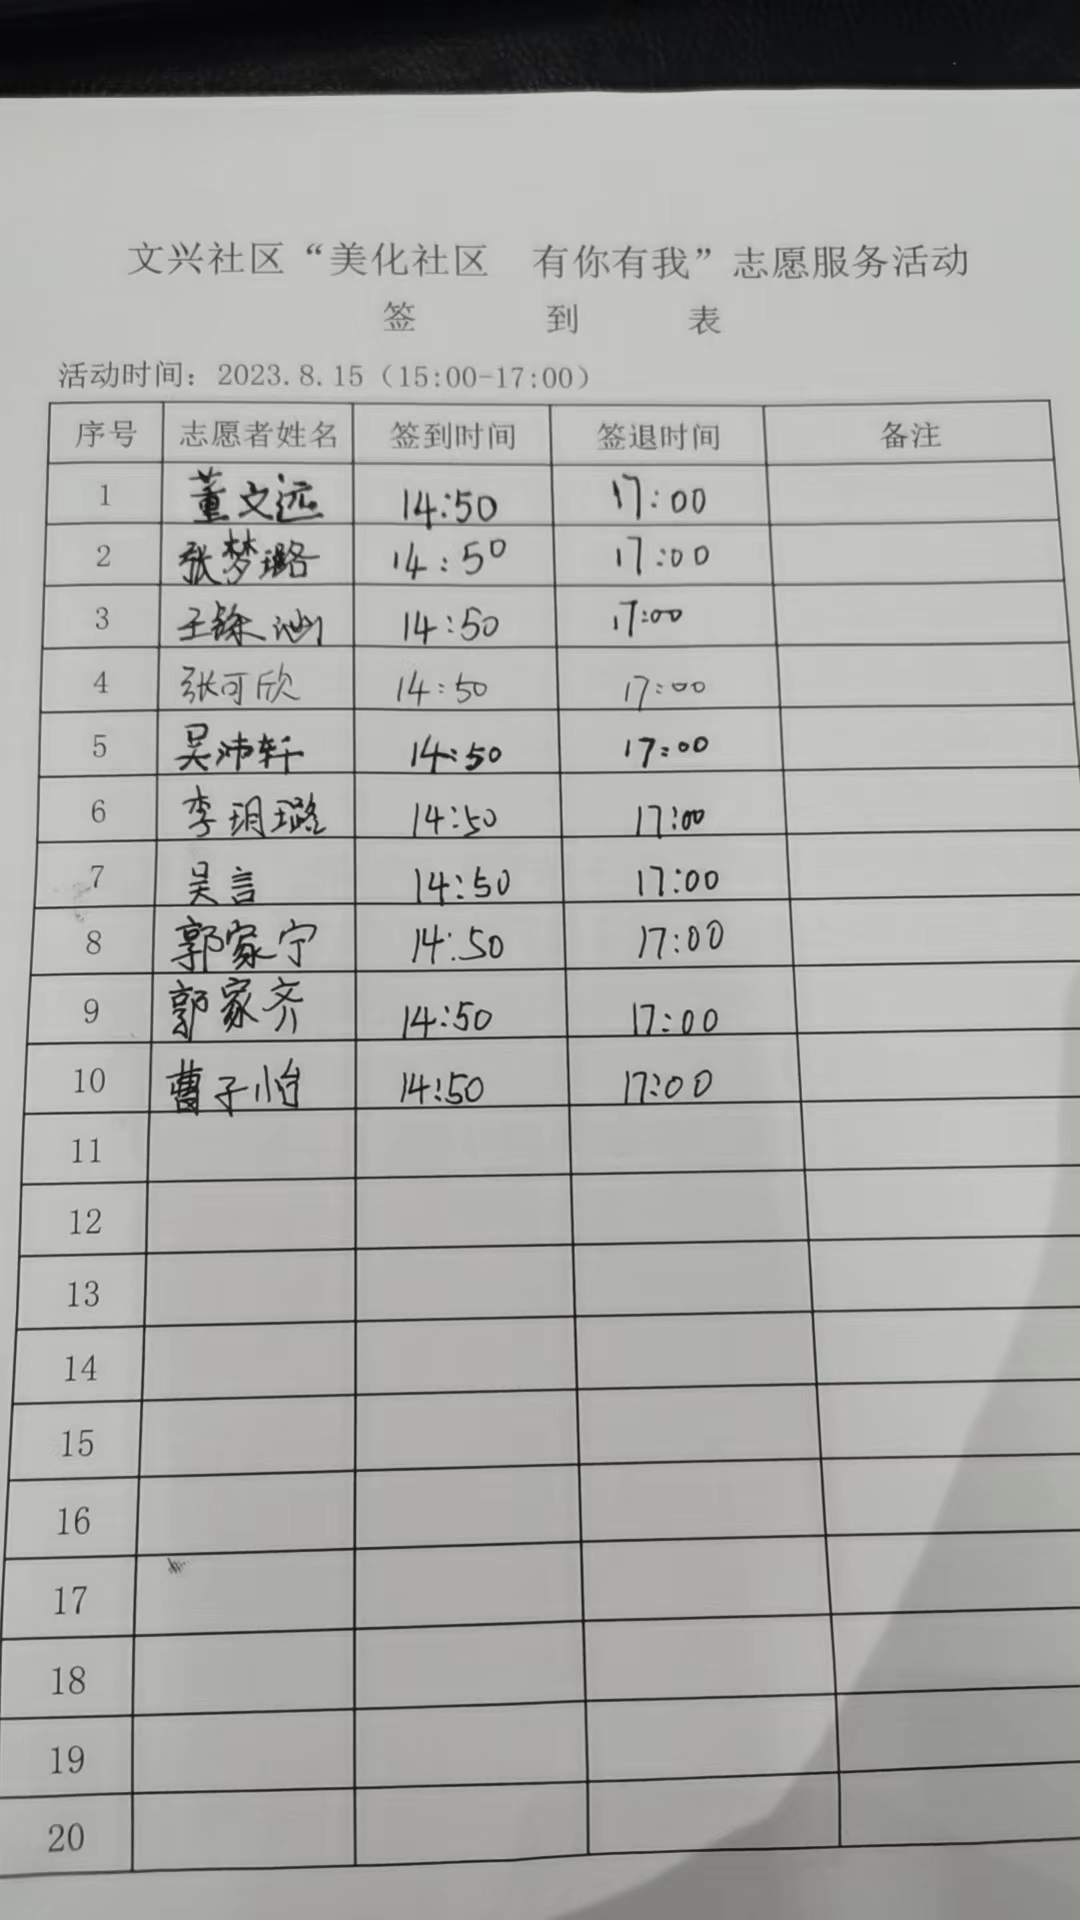 文兴社区“美化社区 有你有我”志愿服务活动
签 到 表
活动时间：2023.8.15（15:00-17:00）
序号 志愿者姓名 签到时间 签退时间 备注
1 董文远 14:50 17:00
2 张梦璐 14:50 17:00
3 王 14:50 17:00
4 张可欣 14:50 17:00
5 吴沛轩 14:50 17:00
6 李玥璐 14:50 17:00
7 吴言 14:50 17:00
8 郭家宁 14:50 17:00
9 郭家齐 14:50 17:00
10 曹子怡 14:50 17:00
11
12
13
14
15
16
17
18
19
20